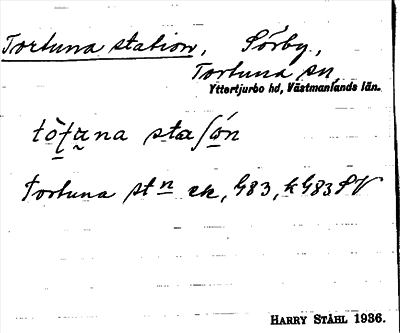 Tortuna station, Sörby,
Tortuna sn
Yttertjurbo hd, Västmanlands län.
Tortuna stn ek, G83, k G83 SV
HARRY STÅHL 1936.